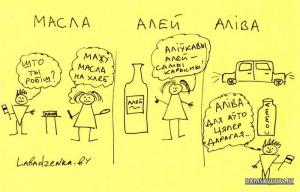 МАСЛА
АЛЕЙ
АЛІВА
ШТО
ТЫ
РОБІШ?
МАЖУ
МАСЛА
НА ХЛЕБ
АЛІЎКАВЫ
АЛЕЙ—
САМЫ
КАРЫСНЫ!
АЛЕЙ
АЛІВА
ДЛЯ АЎТО
ЦЯПЕР
ДАРАГАЯ...
LABADZENKA.BY